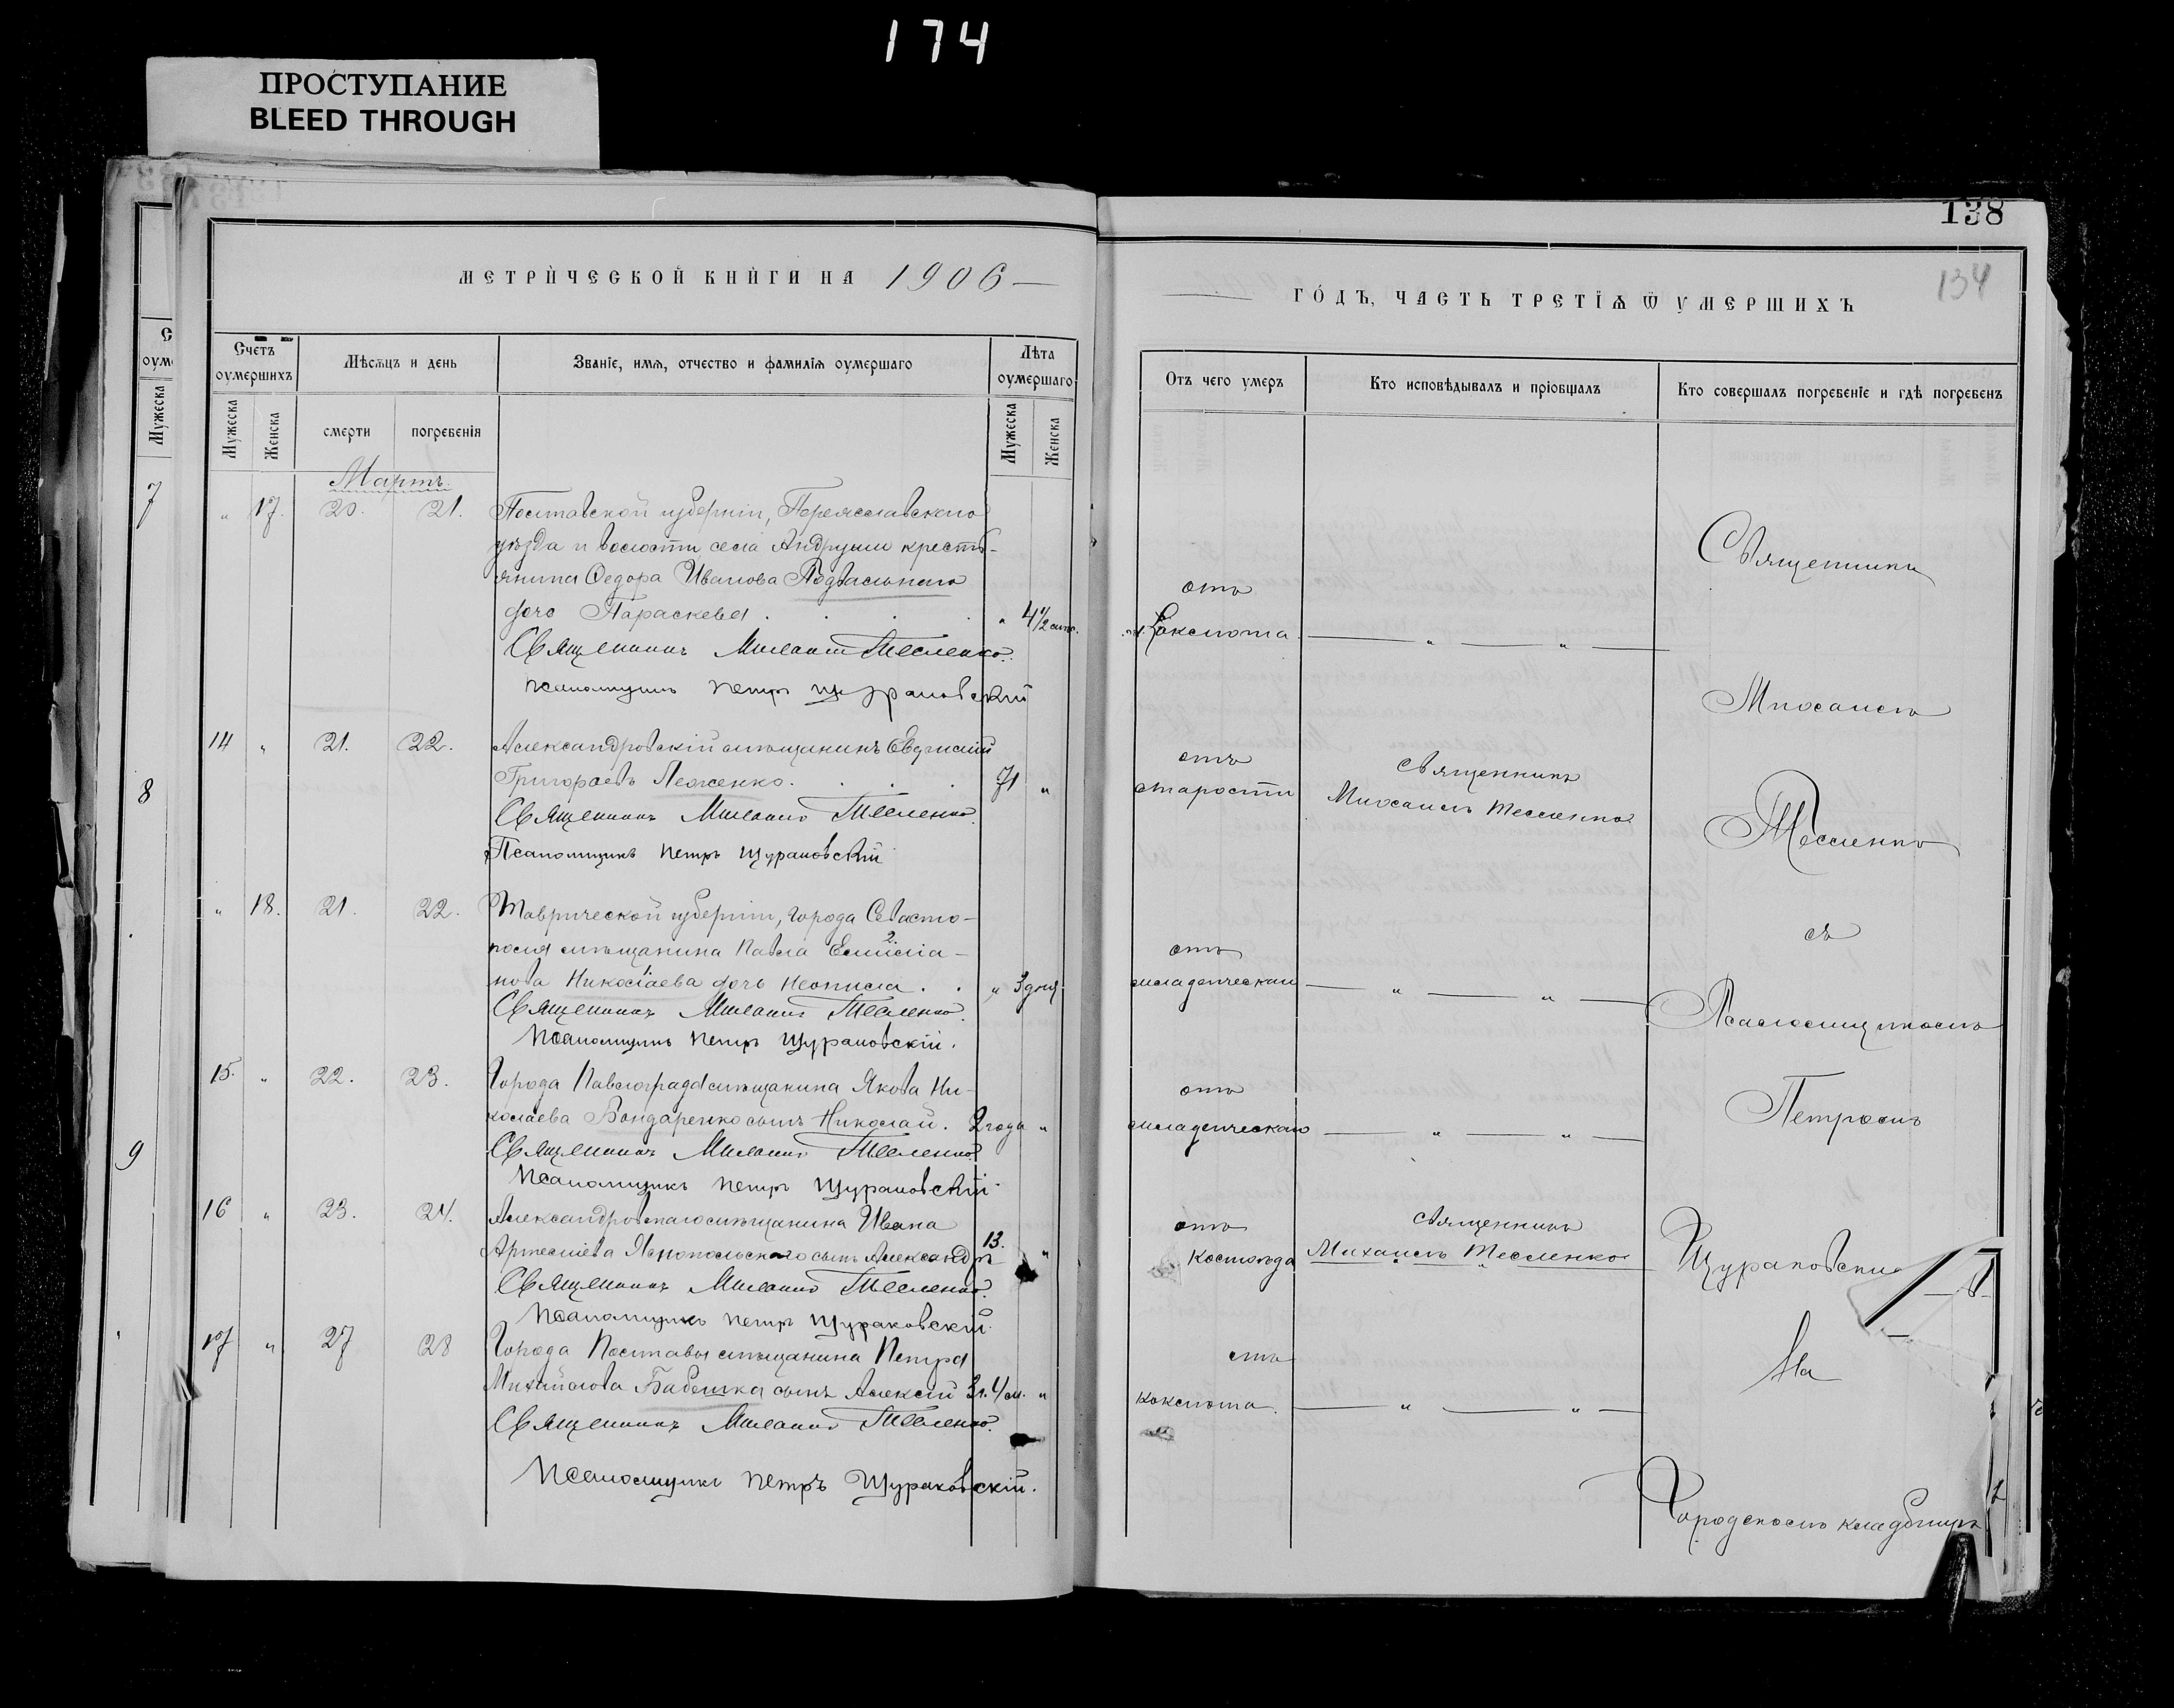 174
ПРОСТУПАНИЕ
BLEED THROUGH
138
134
МЕТРИ́ЧЕСКОЙ КНИ́ГИ НА 1906
ГО́ДЪ, ЧАСТЬ ТРЕТЇѦ Ѿ УМЕРШИХЪ
Счетъ оумершихъ
Мѣсѧцъ и день
Званіе, имѧ, отчество и фамилїѧ оумершаго
Лѣта оумершаго
Отъ чего умеръ
Кто исповѣдывалъ и прїобщалъ
Кто совершалъ погребенїе и гдѣ погребенъ
Мужеска
Женска
смерти
погребенїя
Мужеска
Женска
Мартъ
„ 17. 20. 21. Полтавской губерніи, Переяславскаго
уѣзда и волости села Андруши кресть-
янина Федора Иванова
дочь Параскева . . . . „ 4 1/2
отъ
коклюша — „ — „ —
Священникъ Михаилъ Тесленко.
Псаломщикъ Петръ Щураковскій
14 „ 21. 22. Александровскій мѣщанинъ Евдокий
Григорьевъ Леженко. . . . 71 „
отъ
старости
священникъ
Михаилъ Тесленко
Священникъ Михаилъ Тесленко.
Псаломщикъ Петръ Щураковскій
„ 18. 21. 22. Таврической губерніи, города Севасто-
поля мѣщанина Павла
Николаева дочь Неонила . . „ 3 дня
отъ
младенческой — „ — „ —
Священникъ Михаилъ Тесленко.
Псаломщикъ Петръ Щураковскій.
15. „ 22. 23. Города Павлограда мѣщанина Якова Ни-
колаева Бондаренко сынъ Николай. 2 года „
отъ
младенческаго — „ — „ —
Священникъ Михаилъ Тесленко.
Псаломщикъ Петръ Щураковскій.
16 „ 23. 24. Александровскаго мѣщанина Ивана
Артемiева Яснопольскаго сынъ Александръ 13. „
отъ
костоѣда
священникъ
Михаилъ Тесленко
Священникъ Михаилъ Тесленко.
Псаломщикъ Петръ Щураковскій.
17 „ 27 28 Города Полтавы мѣщанина Петра
Михайлова Бабешка сынъ Алексій 3 г. 4 м. „
отъ
коклюша. — „ — „ —
Священникъ Михаилъ Тесленко.
Псаломщикъ Петръ Щураковскій.
Священникъ
Михаилъ
Тесленко
съ
Псаломщикомъ
Петромъ
Щураковским
На
Городскомъ кладбищѣ
7
8
9